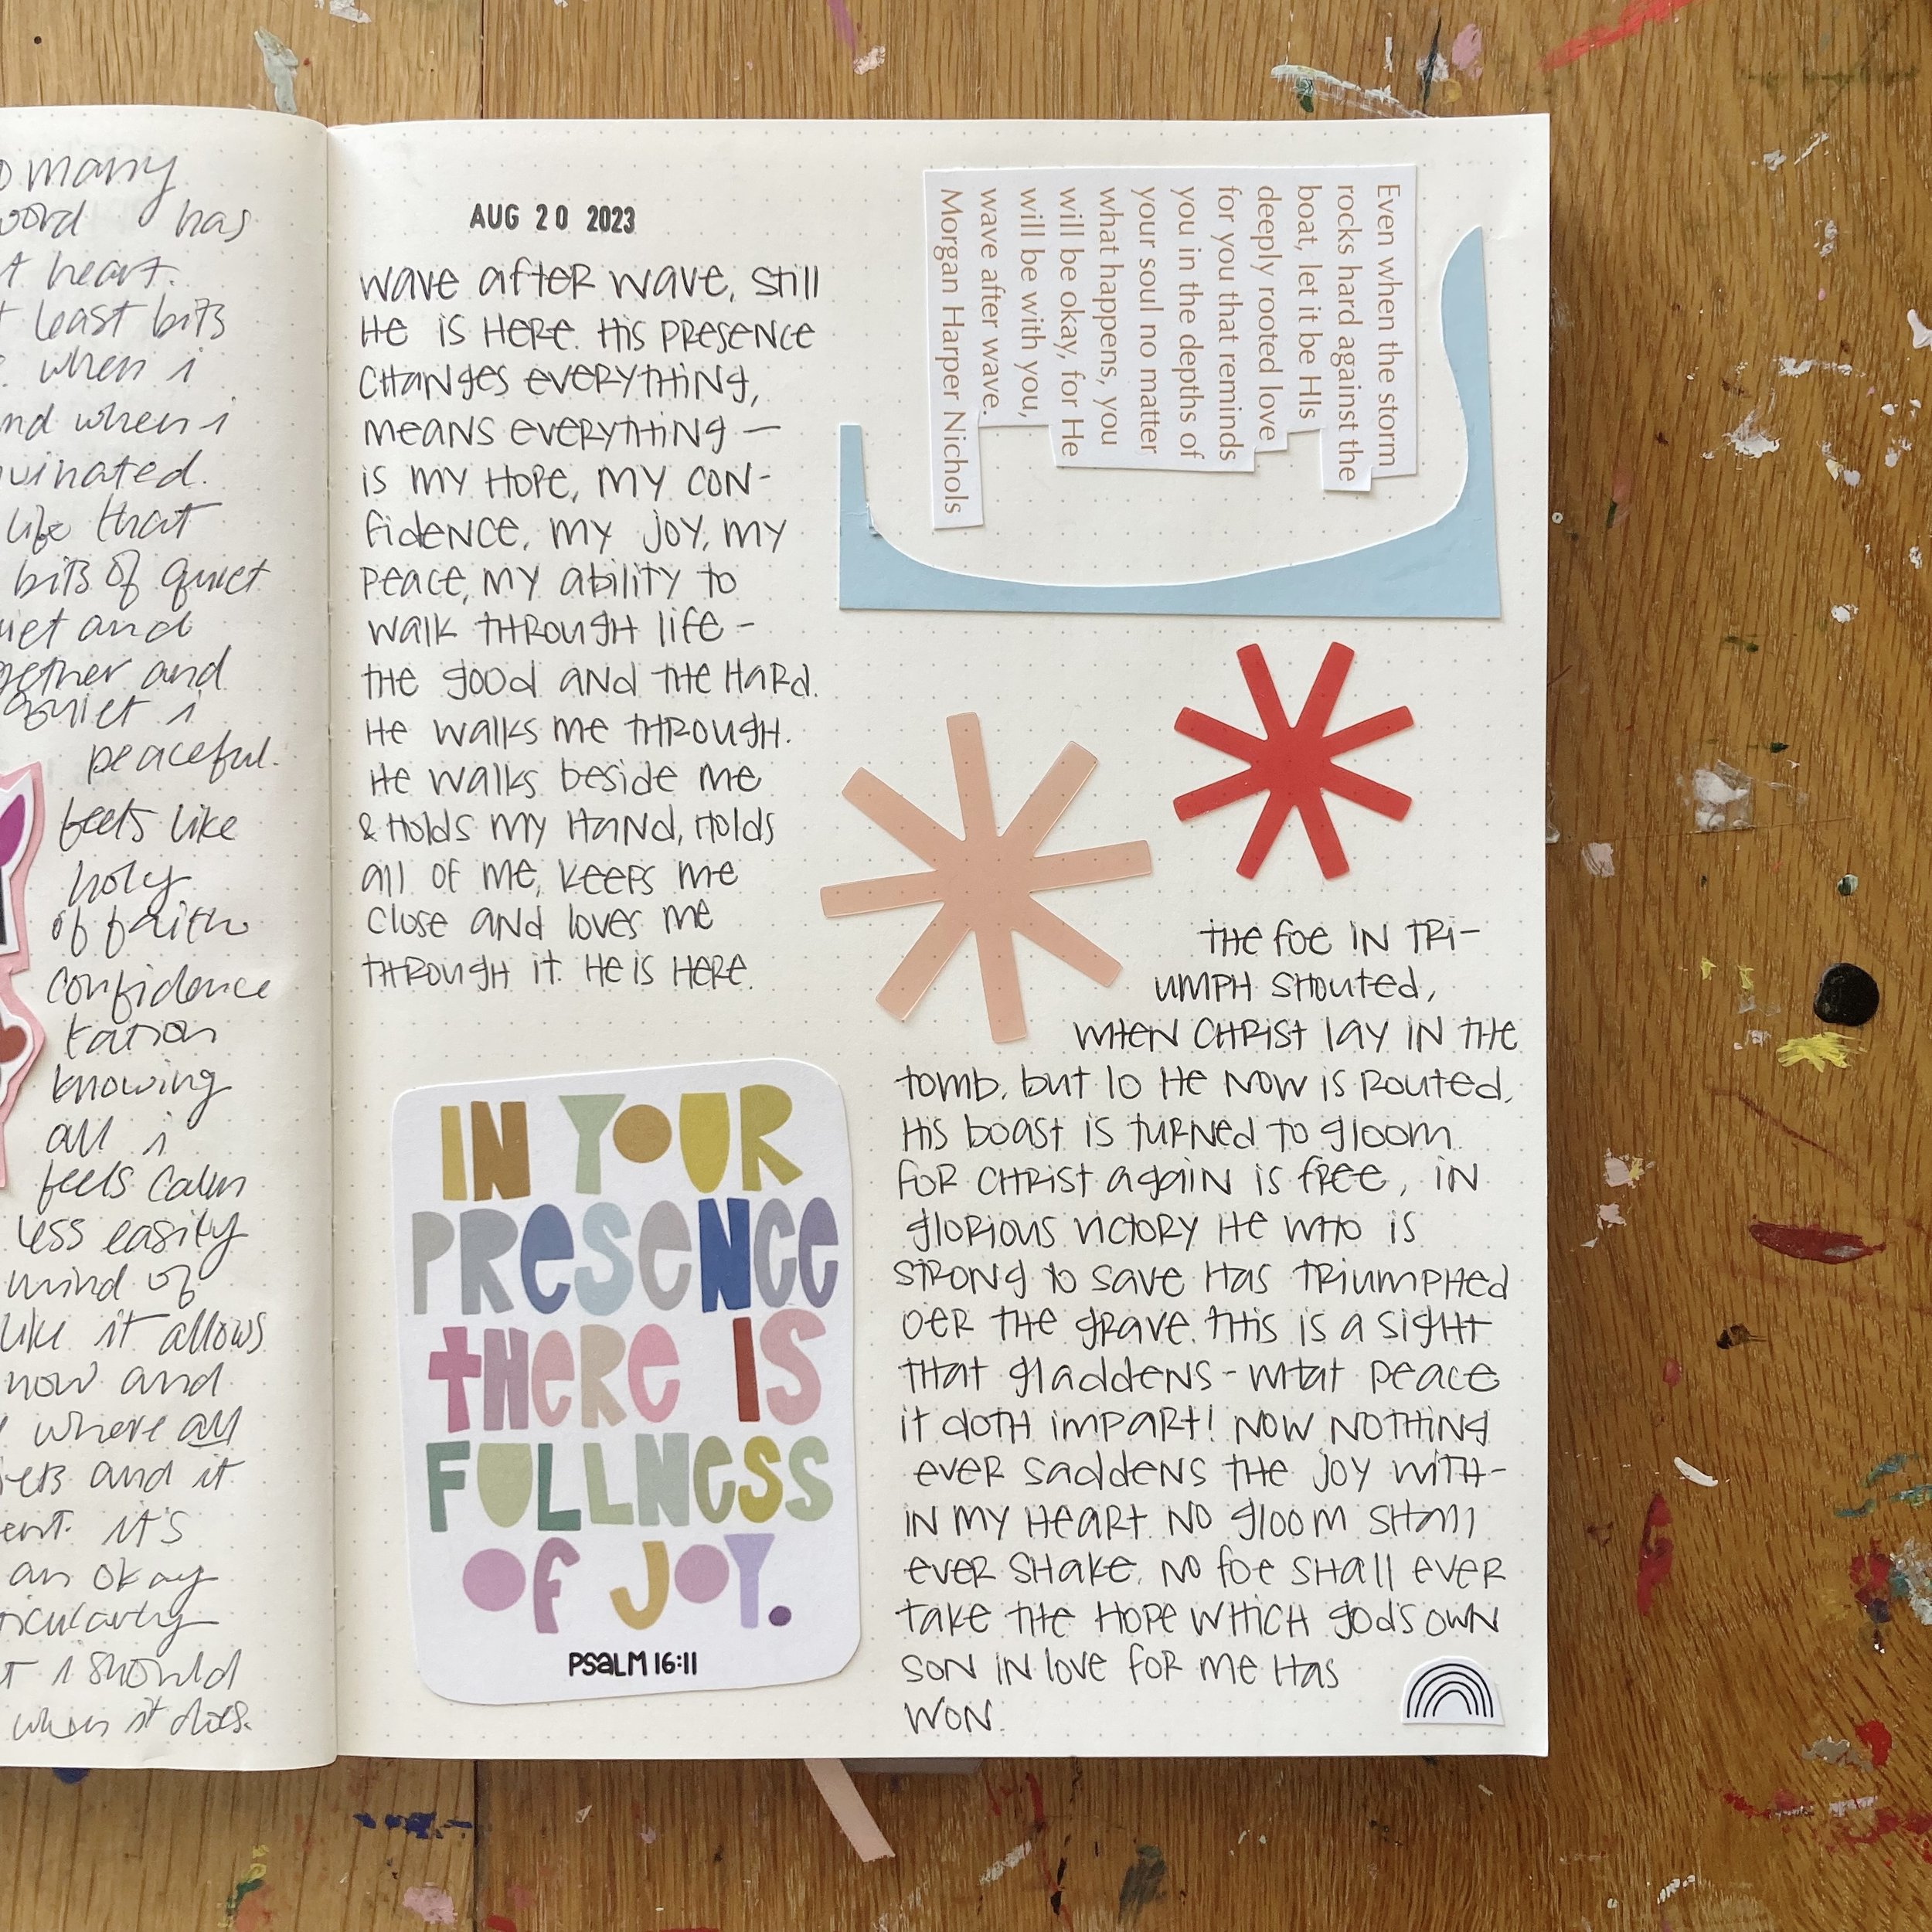 o many
word has
t heart.
t least bits
. when i
nd when i
uinated.
life that
bits of quiet
uiet and
gether and
quiet i
peaceful.
feels like
holy
of faith
confidence
tation
knowing
all i
feels calm
less easily
mind of
like it allows
now and
where all
iets and it
ent. it's
an okay
ticularly
t i should
when it does.
AUG 20 2023
wave after wave, still
He is Here. His presence
changes everything,
means everything —
is my Hope, my con-
fidence, my joy, my
peace, my ability to
walk through life -
the good and the Hard.
He walks me through.
He walks beside me
& Holds my Hand, Holds
all of me, keeps me
close and loves me
through it. He is Here.
IN YOUR
PReSeNCe
tHeRe IS
FULLNeSS
OF JOY.
PSaLM 16:11
Even when the storm
rocks hard against the
boat, let it be HIs
deeply rooted love
for you that reminds
you in the depths of
your soul no matter
what happens, you
will be okay, for He
will be with you,
wave after wave.
Morgan Harper Nichols
the foe in tri-
umph shouted,
when Christ lay in the
tomb, but lo He now is routed,
His boast is turned to gloom.
for Christ again is free, in
glorious victory He who is
strong to save Has triumphed
oer the grave. this is a sight
that gladdens - what peace
it doth impart! Now nothing
ever saddens the joy with-
in my heart. No gloom shall
ever shake, No foe shall ever
take the Hope which god's own
son in love for me Has
won.